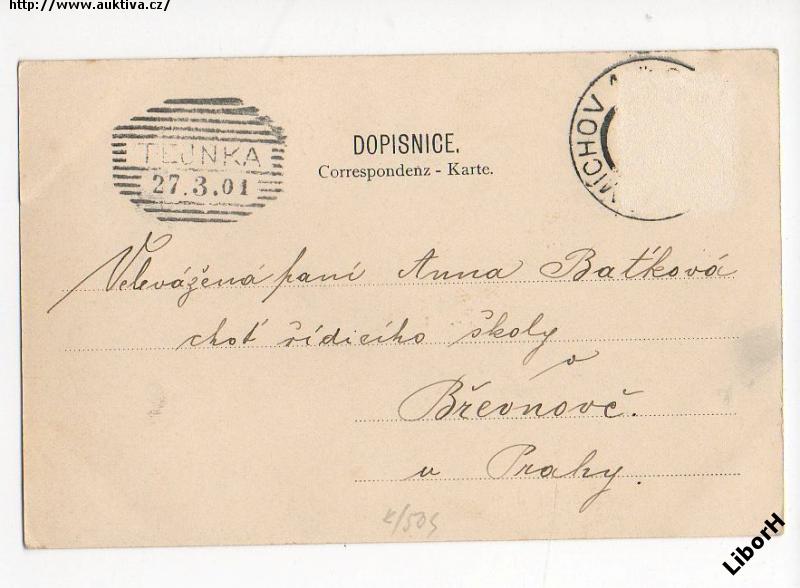 http://www.auktiva.cz/
TEJNKA
27.3.01
DOPISNICE.
Correspondenz - Karte.
MÍCHOV
Velevážená paní Anna Baťková
choť řídicího školy
v
Břevnově.
u Prahy.
K/509
LiborH